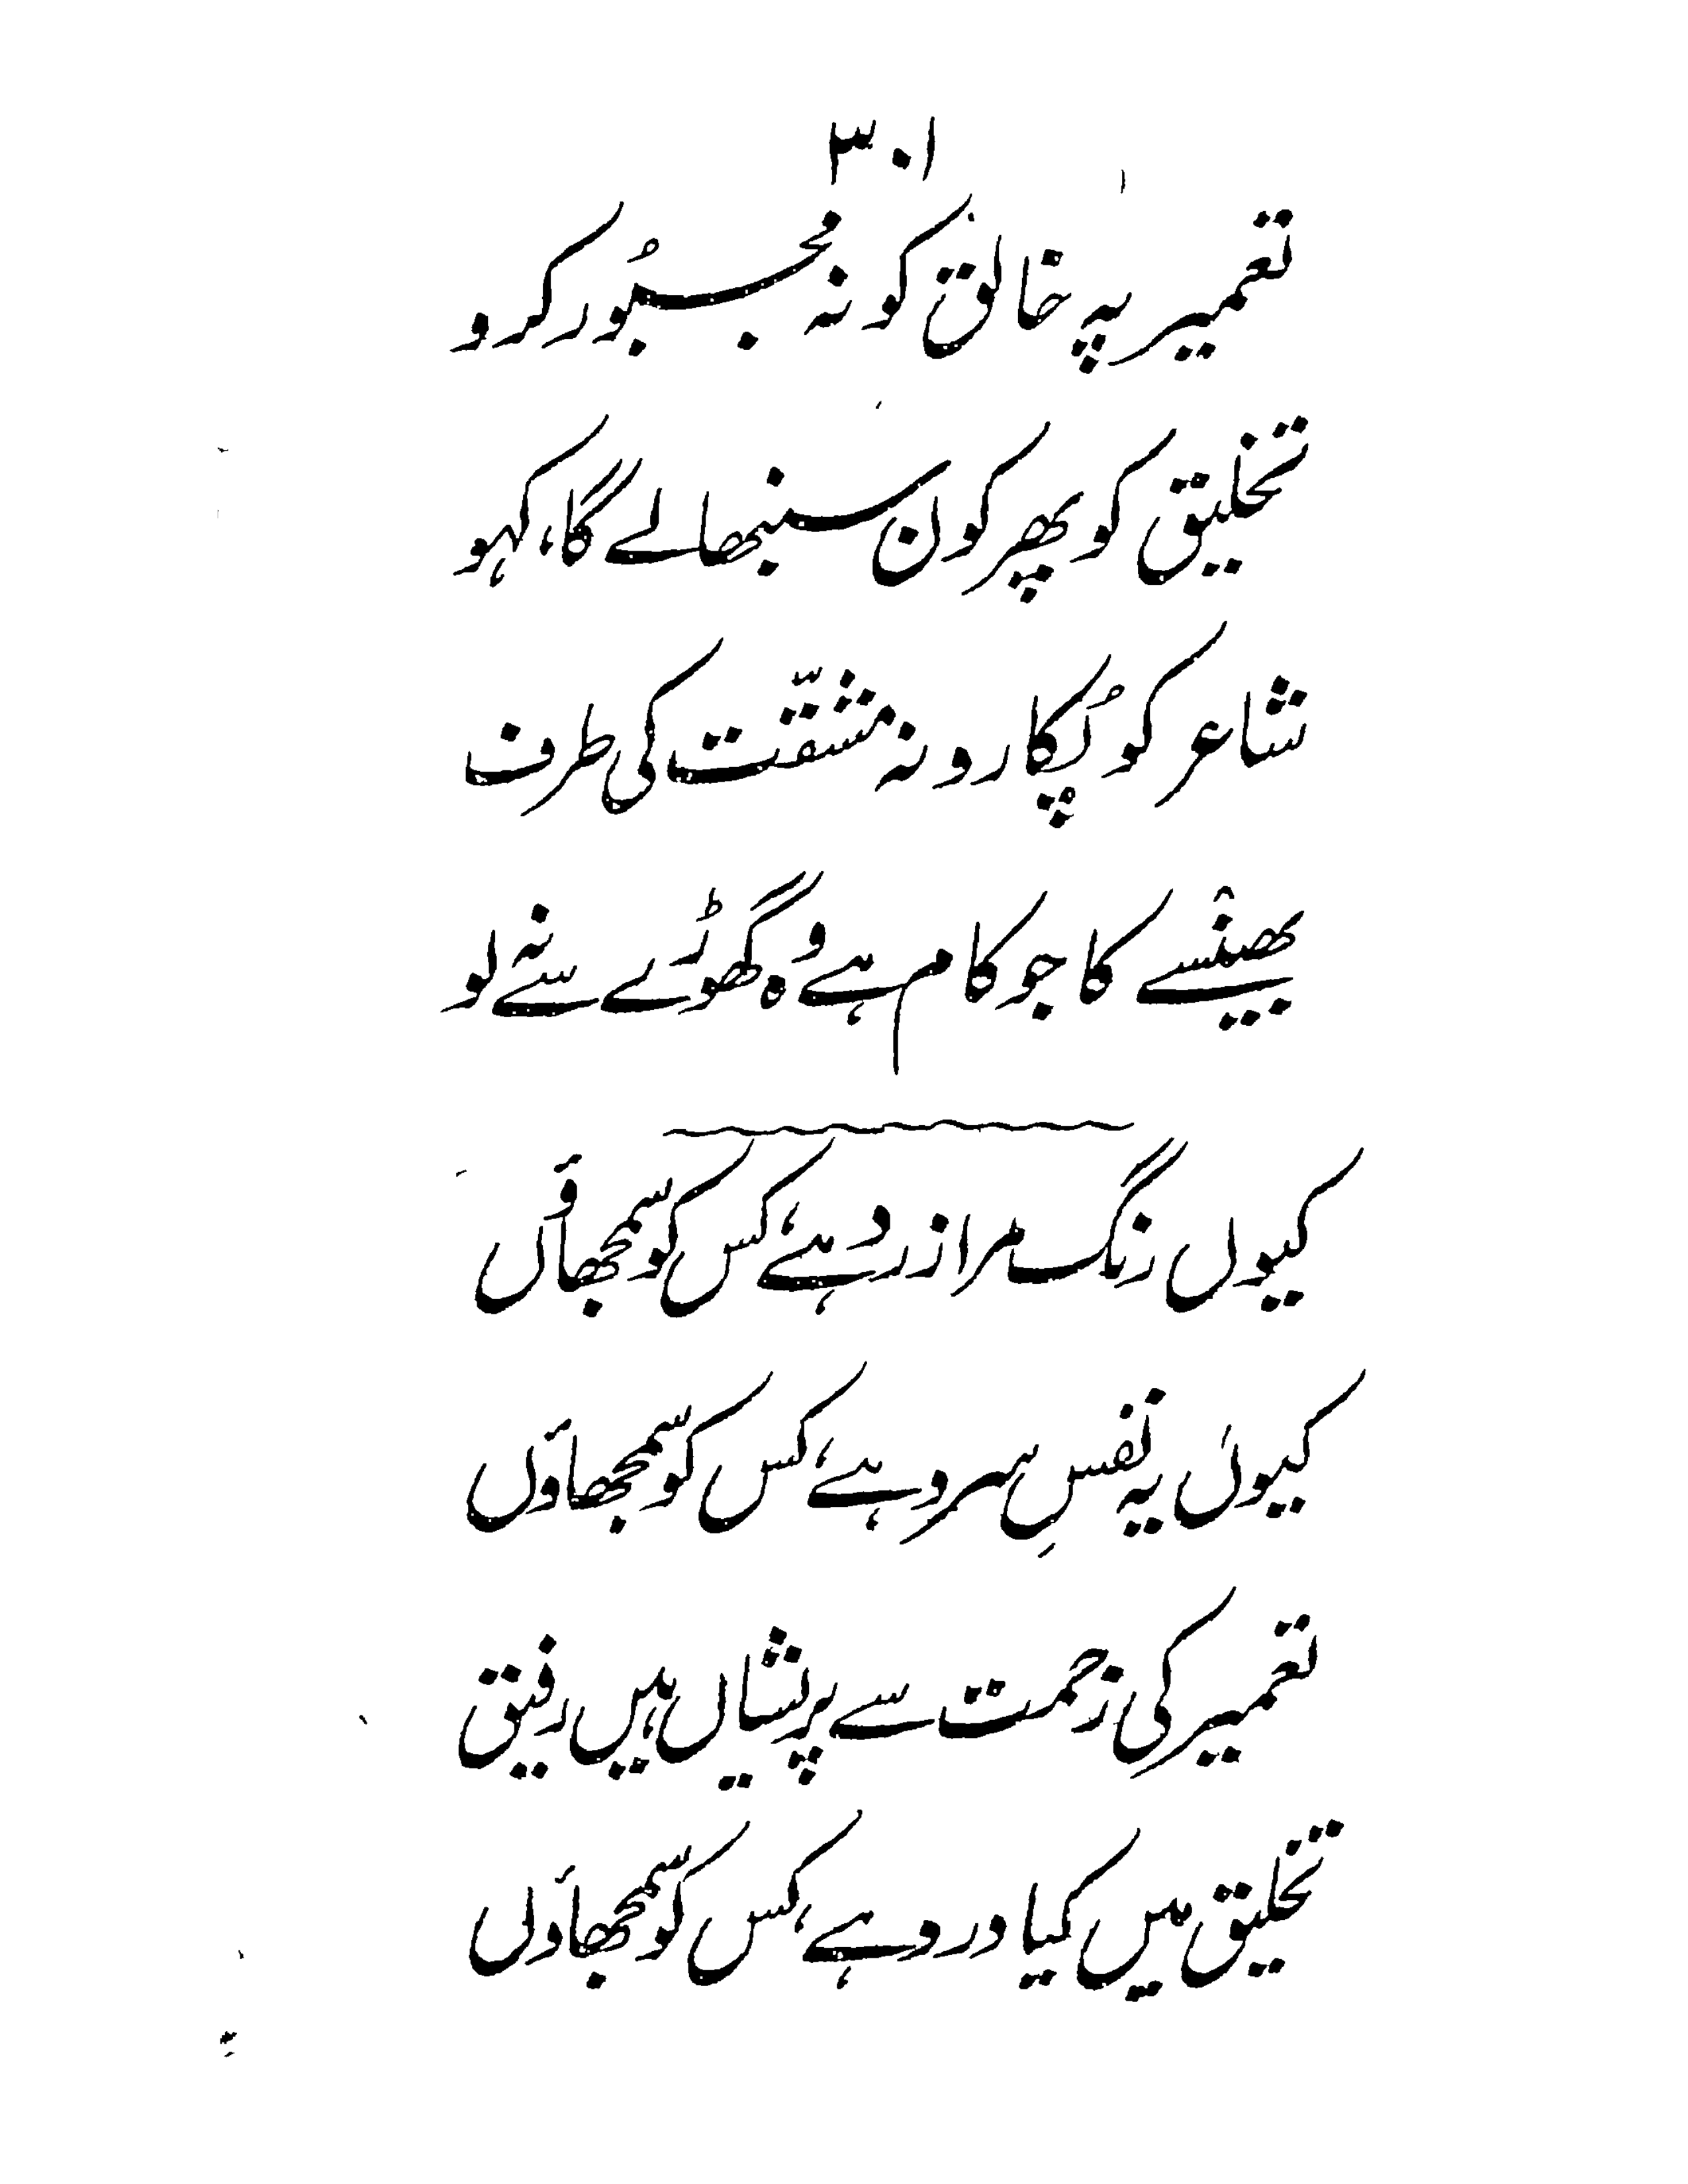 ۳۰۱
تعمیر پہ خالق کو نہ مجبُور کرو
تخلیق کو پھر کون سنبھالے گا، کہو
شاعر کو پُکارو نہ مشقّت کی طرف
بھینسے کا جو کام ہے وہ گھوڑے سے نہ لو
کیوں رنگ مرا زرد ہے، کس کو سمجھاؤں
کیوں یہ نَفَسِ سرد ہے، کس کو سمجھاؤں
تعمیر کی زحمت سے پریشاں ہیں رفیق
تخلیق میں کیا درد ہے، کس کو سمجھاؤں